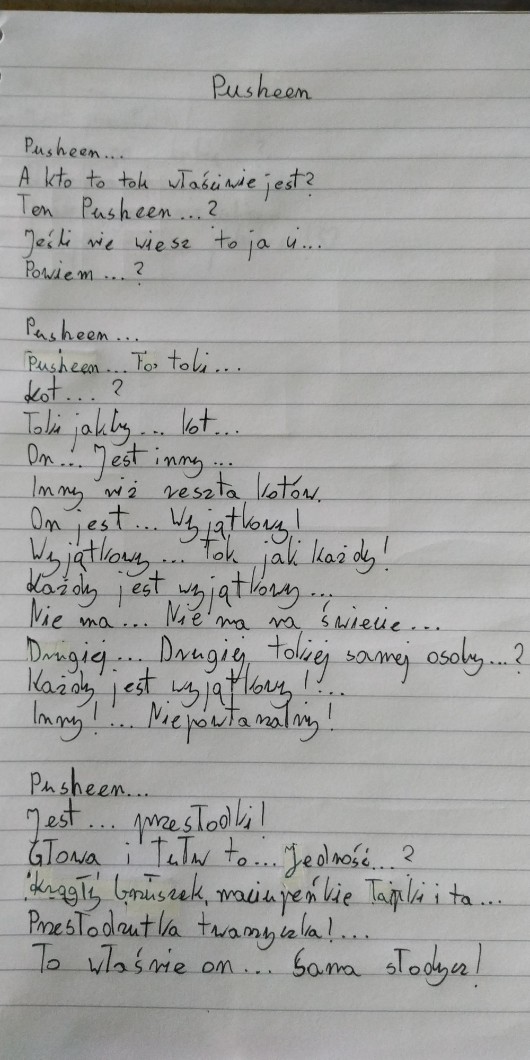 Pusheen
Pusheen...
A kto to tak właściwie jest?
Ten Pusheen...?
Jeśli nie wiesz to ja ci...
Powiem...?
Pusheen...
Pusheen... To, taki...
Kot...?
Taki jakby... kot...
On... Jest inny...
Inny niż reszta kotów.
On jest... Wyjątkowy!
Wyjątkowy... Tak jak każdy!
Każdy jest wyjątkowy...
Nie ma... Nie ma na świecie...
Drugiej... Drugiej takiej samej osoby...?
Każdy jest wyjątkowy!...
Inny!... Niepowtarzalny!
Pusheen...
Jest... przesłodki!
Głowa i tułw to... Jedność...?
Krągły brzuszek, maciupeńkie łapki i ta...
Przesłodziutka twarzyczka!...
To właśnie on... Sama słodycz!